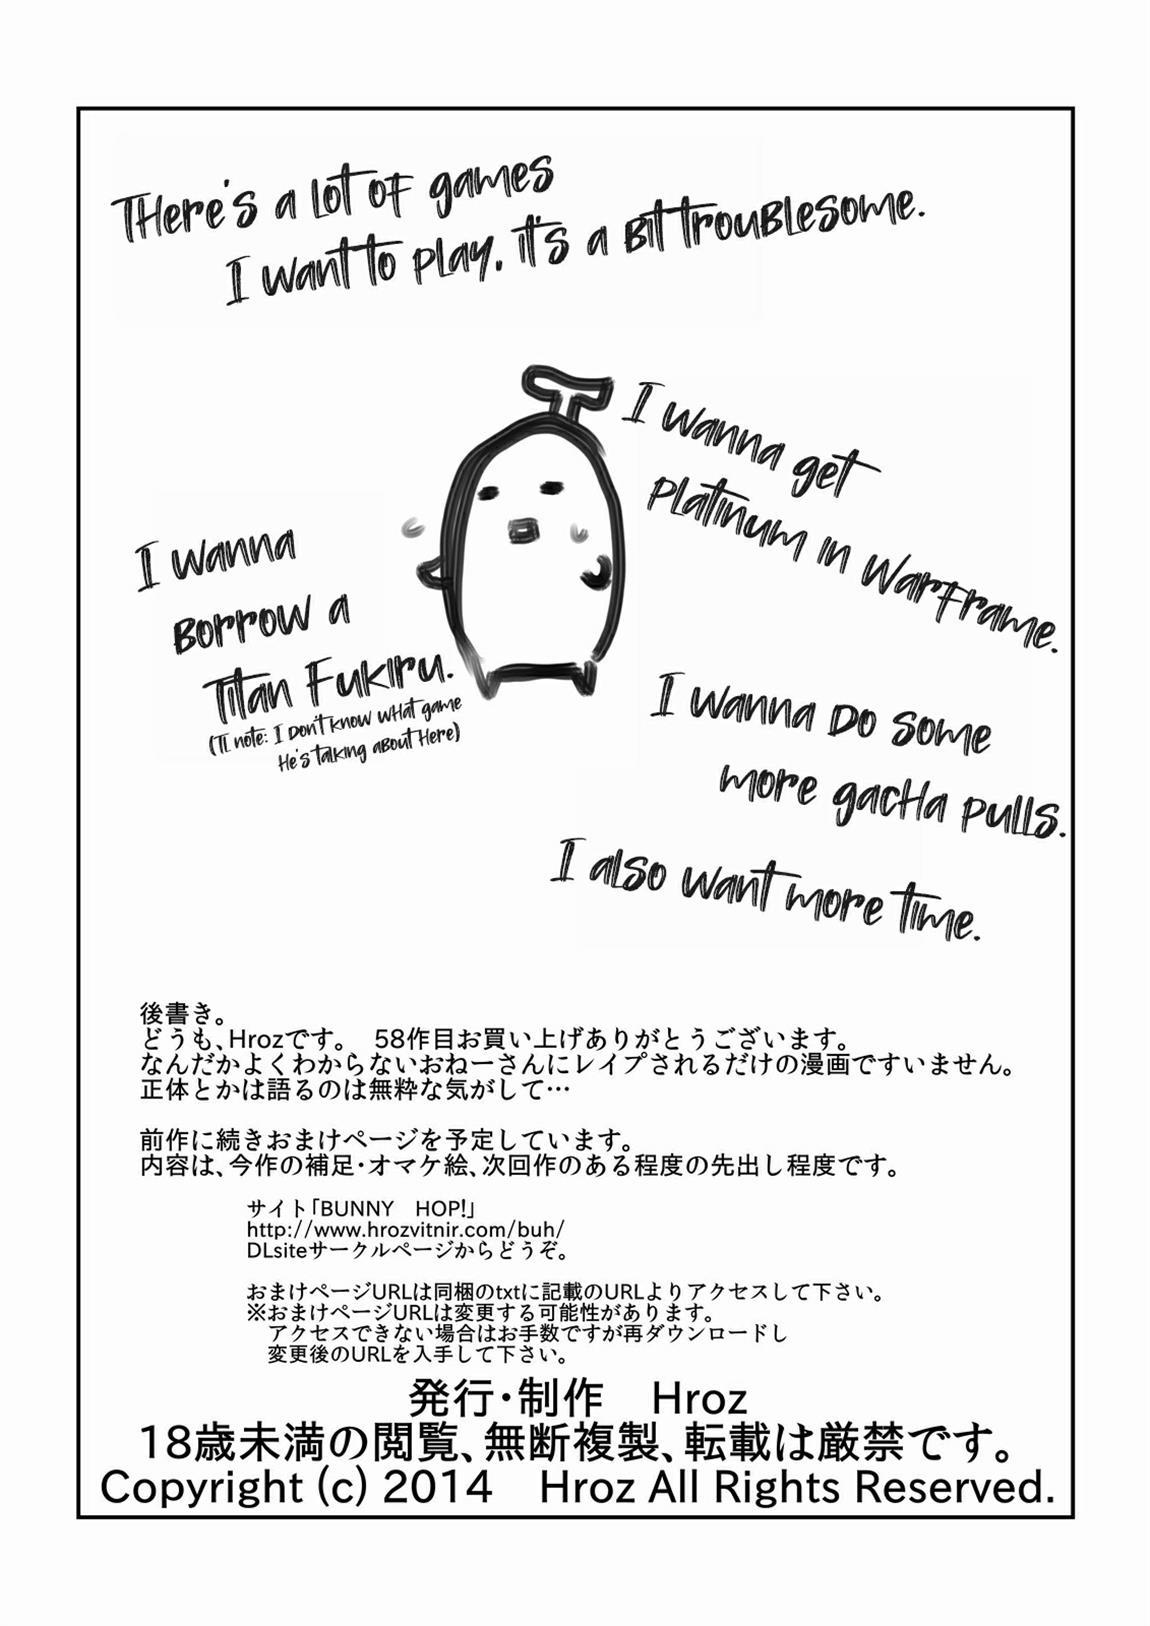 There's a lot of games
I want to play, it's a bit troublesome.
I wanna get
platinum in Warframe.
I wanna
borrow a
Titan Fukiru.
(TL note: I don't know what game
he's talking about here)
I wanna do some
more gacha pulls.
I also want more time.
後書き。
どうも、Hrozです。　58作目お買い上げありがとうございます。
なんだかよくわからないおねーさんにレイプされるだけの漫画ですいません。
正体とかは語るのは無粋な気がして…
前作に続きおまけページを予定しています。
内容は、今作の補足・オマケ絵、次回作のある程度の先出し程度です。
サイト「BUNNY　HOP!」
http://www.hrozvitnir.com/buh/
DLsiteサークルページからどうぞ。
おまけページURLは同梱のtxtに記載のURLよりアクセスして下さい。
※おまけページURLは変更する可能性があります。
アクセスできない場合はお手数ですが再ダウンロードし
変更後のURLを入手して下さい。
発行・制作　Hroz
18歳未満の閲覧、無断複製、転載は厳禁です。
Copyright (c) 2014　Hroz All Rights Reserved.